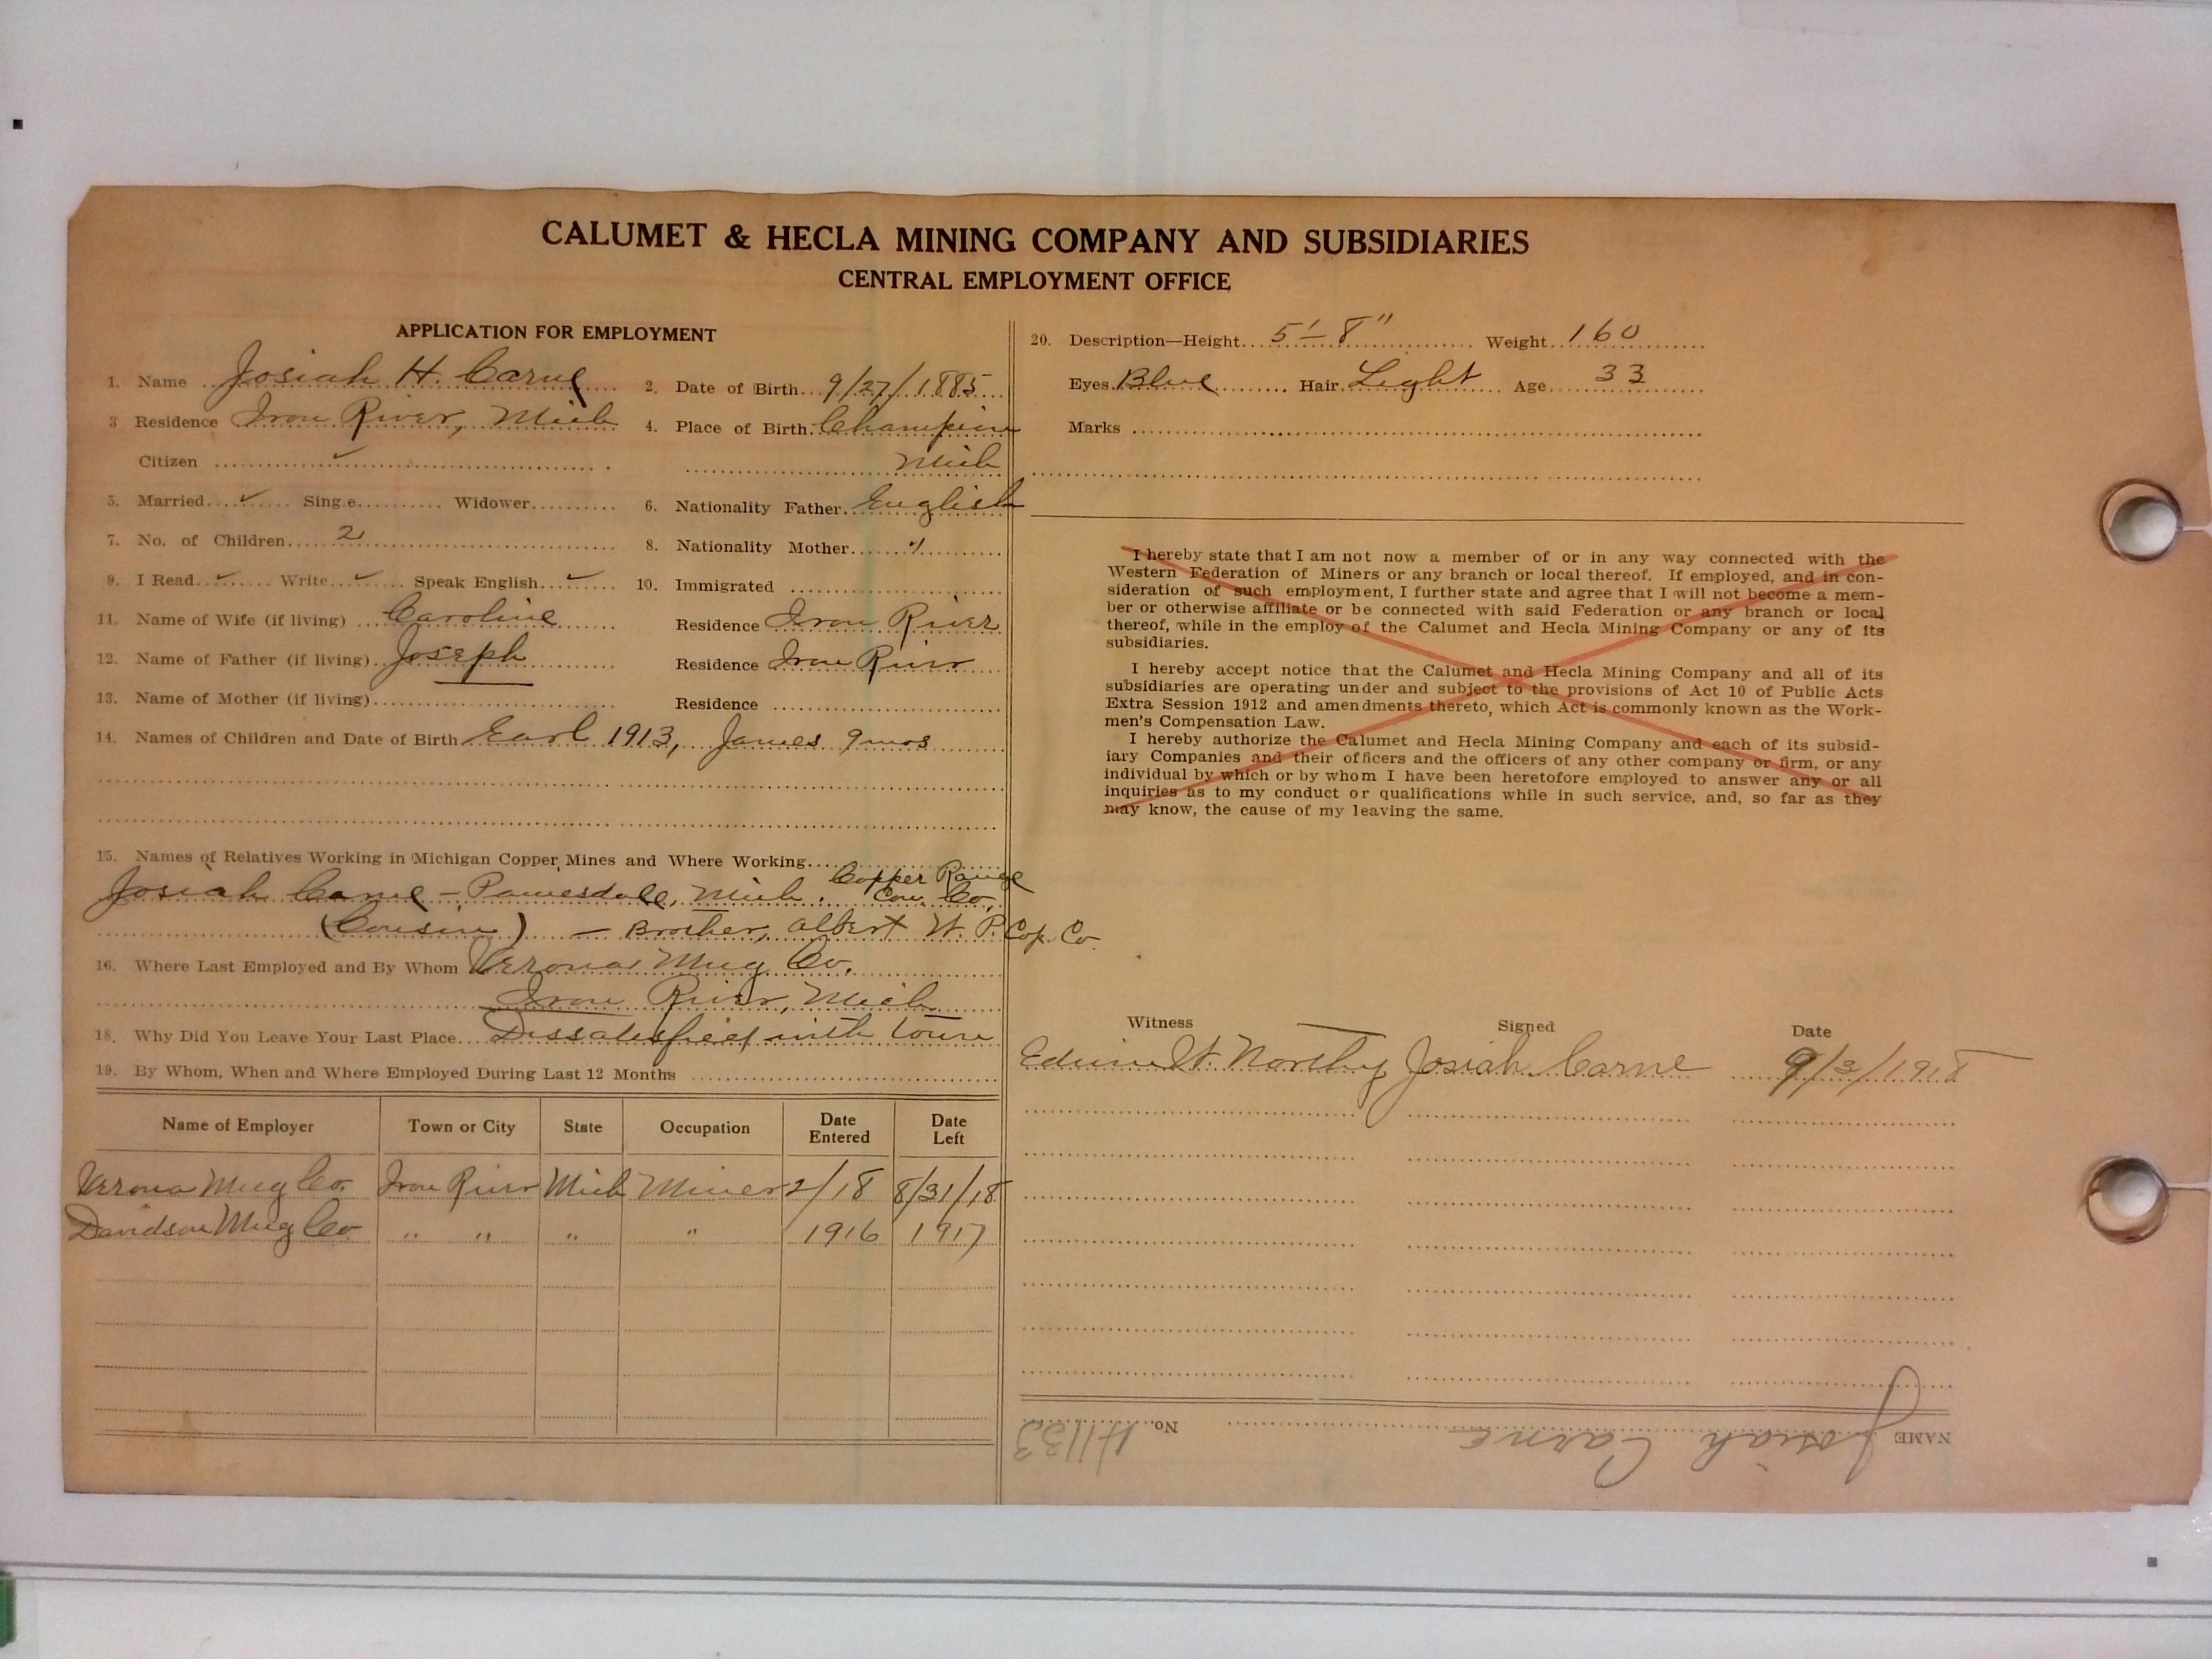 CALUMET & HECLA MINING COMPANY AND SUBSIDIARIES
CENTRAL EMPLOYMENT OFFICE
APPLICATION FOR EMPLOYMENT
1. Name Josiah H. Carne
2. Date of Birth 9/27/1885
3 Residence Iron River, Mich
4. Place of Birth Champion
Citizen ✓
Mich
5. Married ✓ Sing e Widower
6. Nationality Father English
7. No. of Children 2
8. Nationality Mother "
9. I Read ✓ Write ✓ Speak English ✓
10. Immigrated
11. Name of Wife (if living) Caroline
Residence Iron River
12. Name of Father (if living) Joseph
Residence Iron River
13. Name of Mother (if living)
Residence
14. Names of Children and Date of Birth Earl 1913, James 9 mos
15. Names of Relatives Working in Michigan Copper Mines and Where Working
Copper Range
Josiah Carne - Painesdale, Mich. Con. Co.
(Cousin) - Brother, Albert W. P. Cop. Co.
16. Where Last Employed and By Whom Verona Mng Co.
Iron River, Mich
18. Why Did You Leave Your Last Place Dissatisfied with town
19. By Whom, When and Where Employed During Last 12 Months
Name of Employer Town or City State Occupation Date Entered Date Left
Verona Mng Co. Iron River Mich Miner 2/18 8/31/18
Davidson Mng Co " " " " 1916 1917
20. Description—Height 5'-8" Weight 160
Eyes Blue Hair Light Age 33
Marks
I hereby state that I am not now a member of or in any way connected with the
Western Federation of Miners or any branch or local thereof. If employed, and in con-
sideration of such employment, I further state and agree that I will not become a mem-
ber or otherwise affiliate or be connected with said Federation or any branch or local
thereof, while in the employ of the Calumet and Hecla Mining Company or any of its
subsidiaries.
I hereby accept notice that the Calumet and Hecla Mining Company and all of its
subsidiaries are operating under and subject to the provisions of Act 10 of Public Acts
Extra Session 1912 and amendments thereto, which Act is commonly known as the Work-
men's Compensation Law.
I hereby authorize the Calumet and Hecla Mining Company and each of its subsid-
iary Companies and their officers and the officers of any other company or firm, or any
individual by which or by whom I have been heretofore employed to answer any or all
inquiries as to my conduct or qualifications while in such service, and, so far as they
may know, the cause of my leaving the same.
Witness Signed Date
Edwin W. Northy Josiah Carne 9/3/1918
NAME Josiah Carne No. 41133